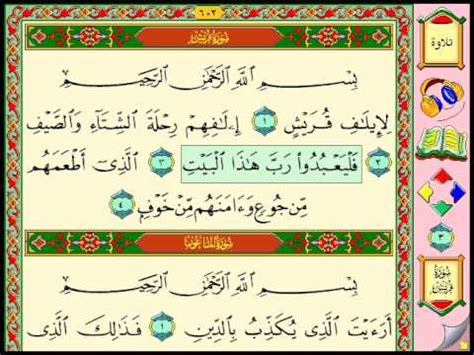 ٦٠٢
سُورَةُ قُرَيْشٍ
بِسْمِ ٱللَّهِ ٱلرَّحْمَٰنِ ٱلرَّحِيمِ
لِإِيلَٰفِ قُرَيْشٍ ١ إِۦلَٰفِهِمْ رِحْلَةَ ٱلشِّتَآءِ وَٱلصَّيْفِ
٢ فَلْيَعْبُدُوا۟ رَبَّ هَٰذَا ٱلْبَيْتِ ٣ ٱلَّذِىٓ أَطْعَمَهُم
مِّن جُوعٍ وَءَامَنَهُم مِّنْ خَوْفٍۭ ٤
سُورَةُ المَاعُونِ
بِسْمِ ٱللَّهِ ٱلرَّحْمَٰنِ ٱلرَّحِيمِ
أَرَءَيْتَ ٱلَّذِى يُكَذِّبُ بِٱلدِّينِ ١ فَذَٰلِكَ ٱلَّذِى
تلاوة
٣
سُورَةُ
قُرَيْشٍ